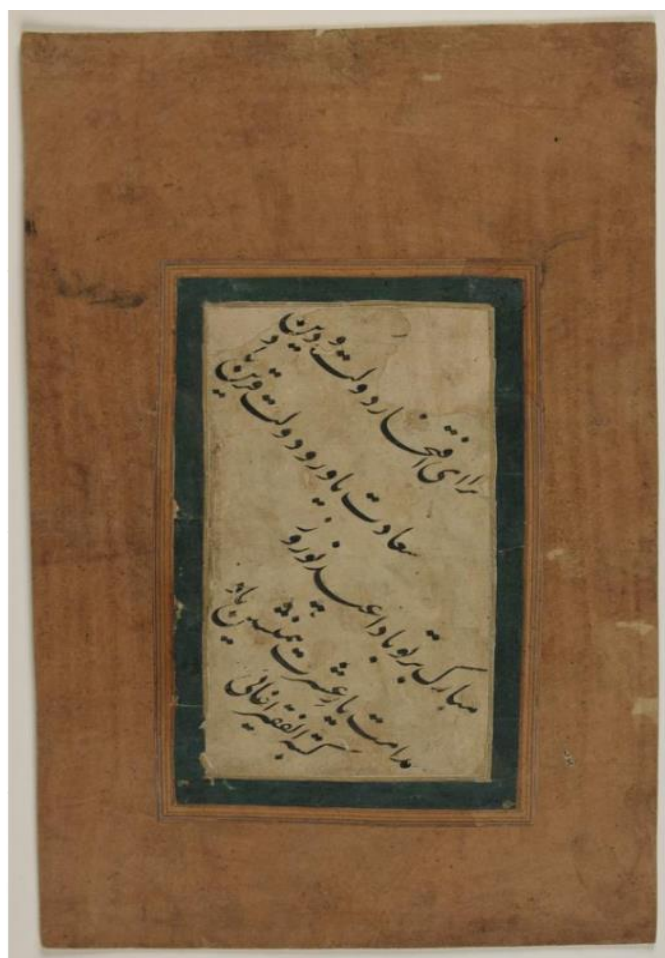 برای افتخار دولت و دین
سعادت یاور و دولت قرین باد
مبارک بر تو بادا عید نوروز
مدامت یار عشرت همنشین باد
کتبه الفقیر